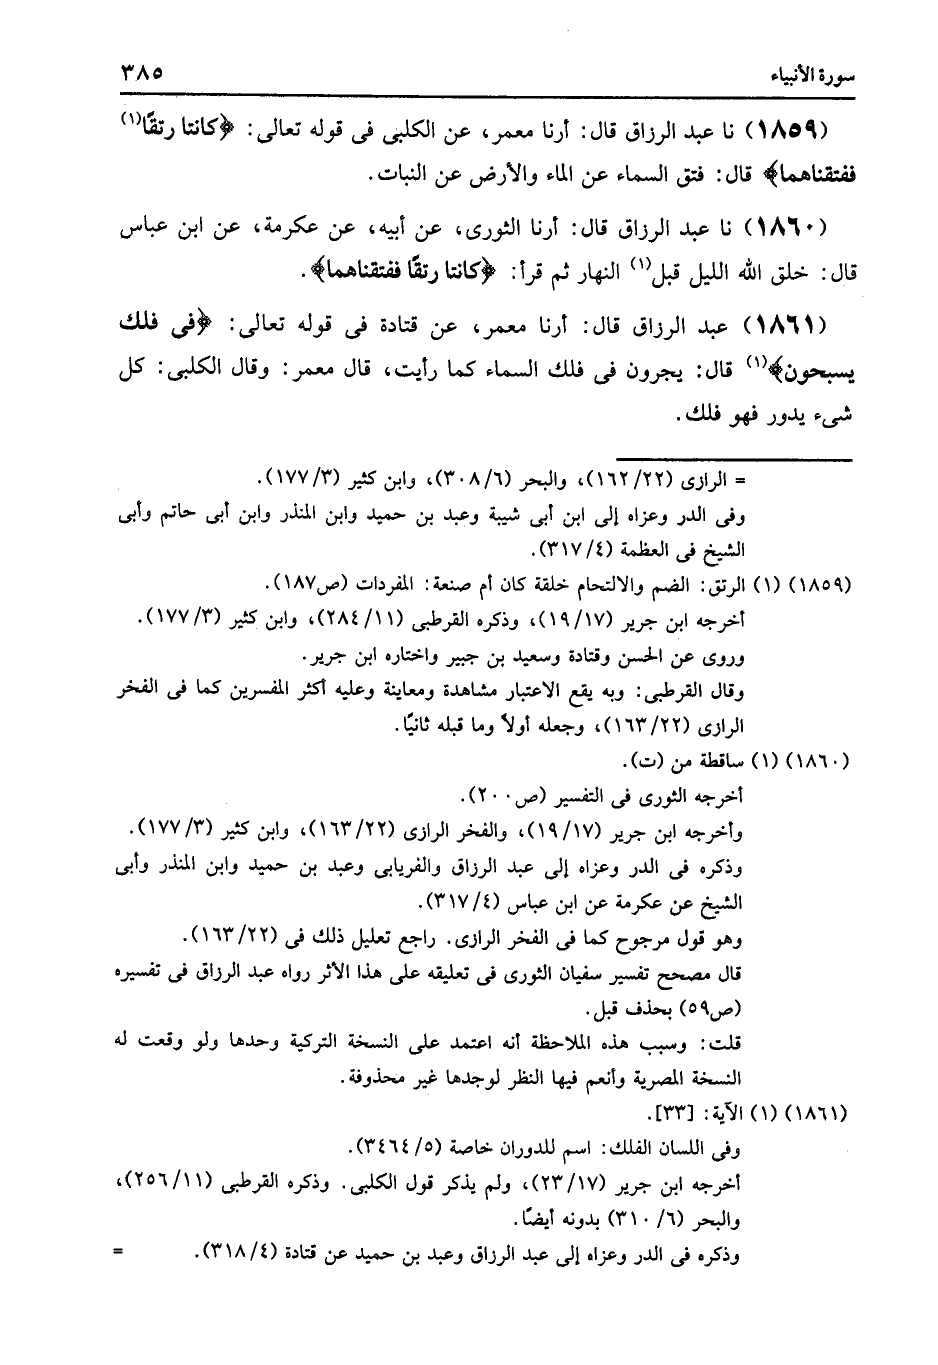 سورة الأنبياء ٣٨٥
(١٨٥٩) نا عبد الرزاق قال: أرنا معمر، عن الكلبى فى قوله تعالى: ﴿كانتا رتقًا(١)
ففتقناهما﴾ قال: فتق السماء عن الماء والأرض عن النبات.
(١٨٦٠) نا عبد الرزاق قال: أرنا الثورى، عن أبيه، عن عكرمة، عن ابن عباس
قال: خلق الله الليل قبل(١) النهار ثم قرأ: ﴿كانتا رتقًا ففتقناهما﴾.
(١٨٦١) عبد الرزاق قال: أرنا معمر، عن قتادة فى قوله تعالى: ﴿فى فلك
يسبحون﴾(١) قال: يجرون فى فلك السماء كما رأيت، قال معمر: وقال الكلبى: كل
شىء يدور فهو فلك.
= الرازى (١٦٢/٢٢)، والبحر (٣٠٨/٦)، وابن كثير (١٧٧/٣).
وفى الدر وعزاه إلى ابن أبى شيبة وعبد بن حميد وابن المنذر وابن أبى حاتم وأبى
الشيخ فى العظمة (٣١٧/٤).
(١٨٥٩) (١) الرتق: الضم والالتحام خلقة كان أم صنعة: المفردات (ص١٨٧).
أخرجه ابن جرير (١٩/١٧)، وذكره القرطبى (٢٨٤/١١)، وابن كثير (١٧٧/٣).
وروى عن الحسن وقتادة وسعيد بن جبير واختاره ابن جرير.
وقال القرطبى: وبه يقع الاعتبار مشاهدة ومعاينة وعليه أكثر المفسرين كما فى الفخر
الرازى (١٦٣/٢٢)، وجعله أولاً وما قبله ثانيًا.
(١٨٦٠) (١) ساقطة من (ت).
أخرجه الثورى فى التفسير (ص٢٠٠).
وأخرجه ابن جرير (١٩/١٧)، والفخر الرازى (١٦٣/٢٢)، وابن كثير (١٧٧/٣).
وذكره فى الدر وعزاه إلى عبد الرزاق والفريابى وعبد بن حميد وابن المنذر وأبى
الشيخ عن عكرمة عن ابن عباس (٣١٧/٤).
وهو قول مرجوح كما فى الفخر الرازى. راجع تعليل ذلك فى (١٦٣/٢٢).
قال مصحح تفسير سفيان الثورى فى تعليقه على هذا الأثر رواه عبد الرزاق فى تفسيره
(ص٥٩) بحذف قبل.
قلت: وسبب هذه الملاحظة أنه اعتمد على النسخة التركية وحدها ولو وقعت له
النسخة المصرية وأنعم فيها النظر لوجدها غير محذوفة.
(١٨٦١) (١) الآية: [٣٣].
وفى اللسان الفلك: اسم للدوران خاصة (٣٤٦٤/٥).
أخرجه ابن جرير (٢٣/١٧)، ولم يذكر قول الكلبى. وذكره القرطبى (٢٥٦/١١)،
والبحر (٣١٠/٦) بدونه أيضًا.
وذكره فى الدر وعزاه إلى عبد الرزاق وعبد بن حميد عن قتادة (٣١٨/٤). =